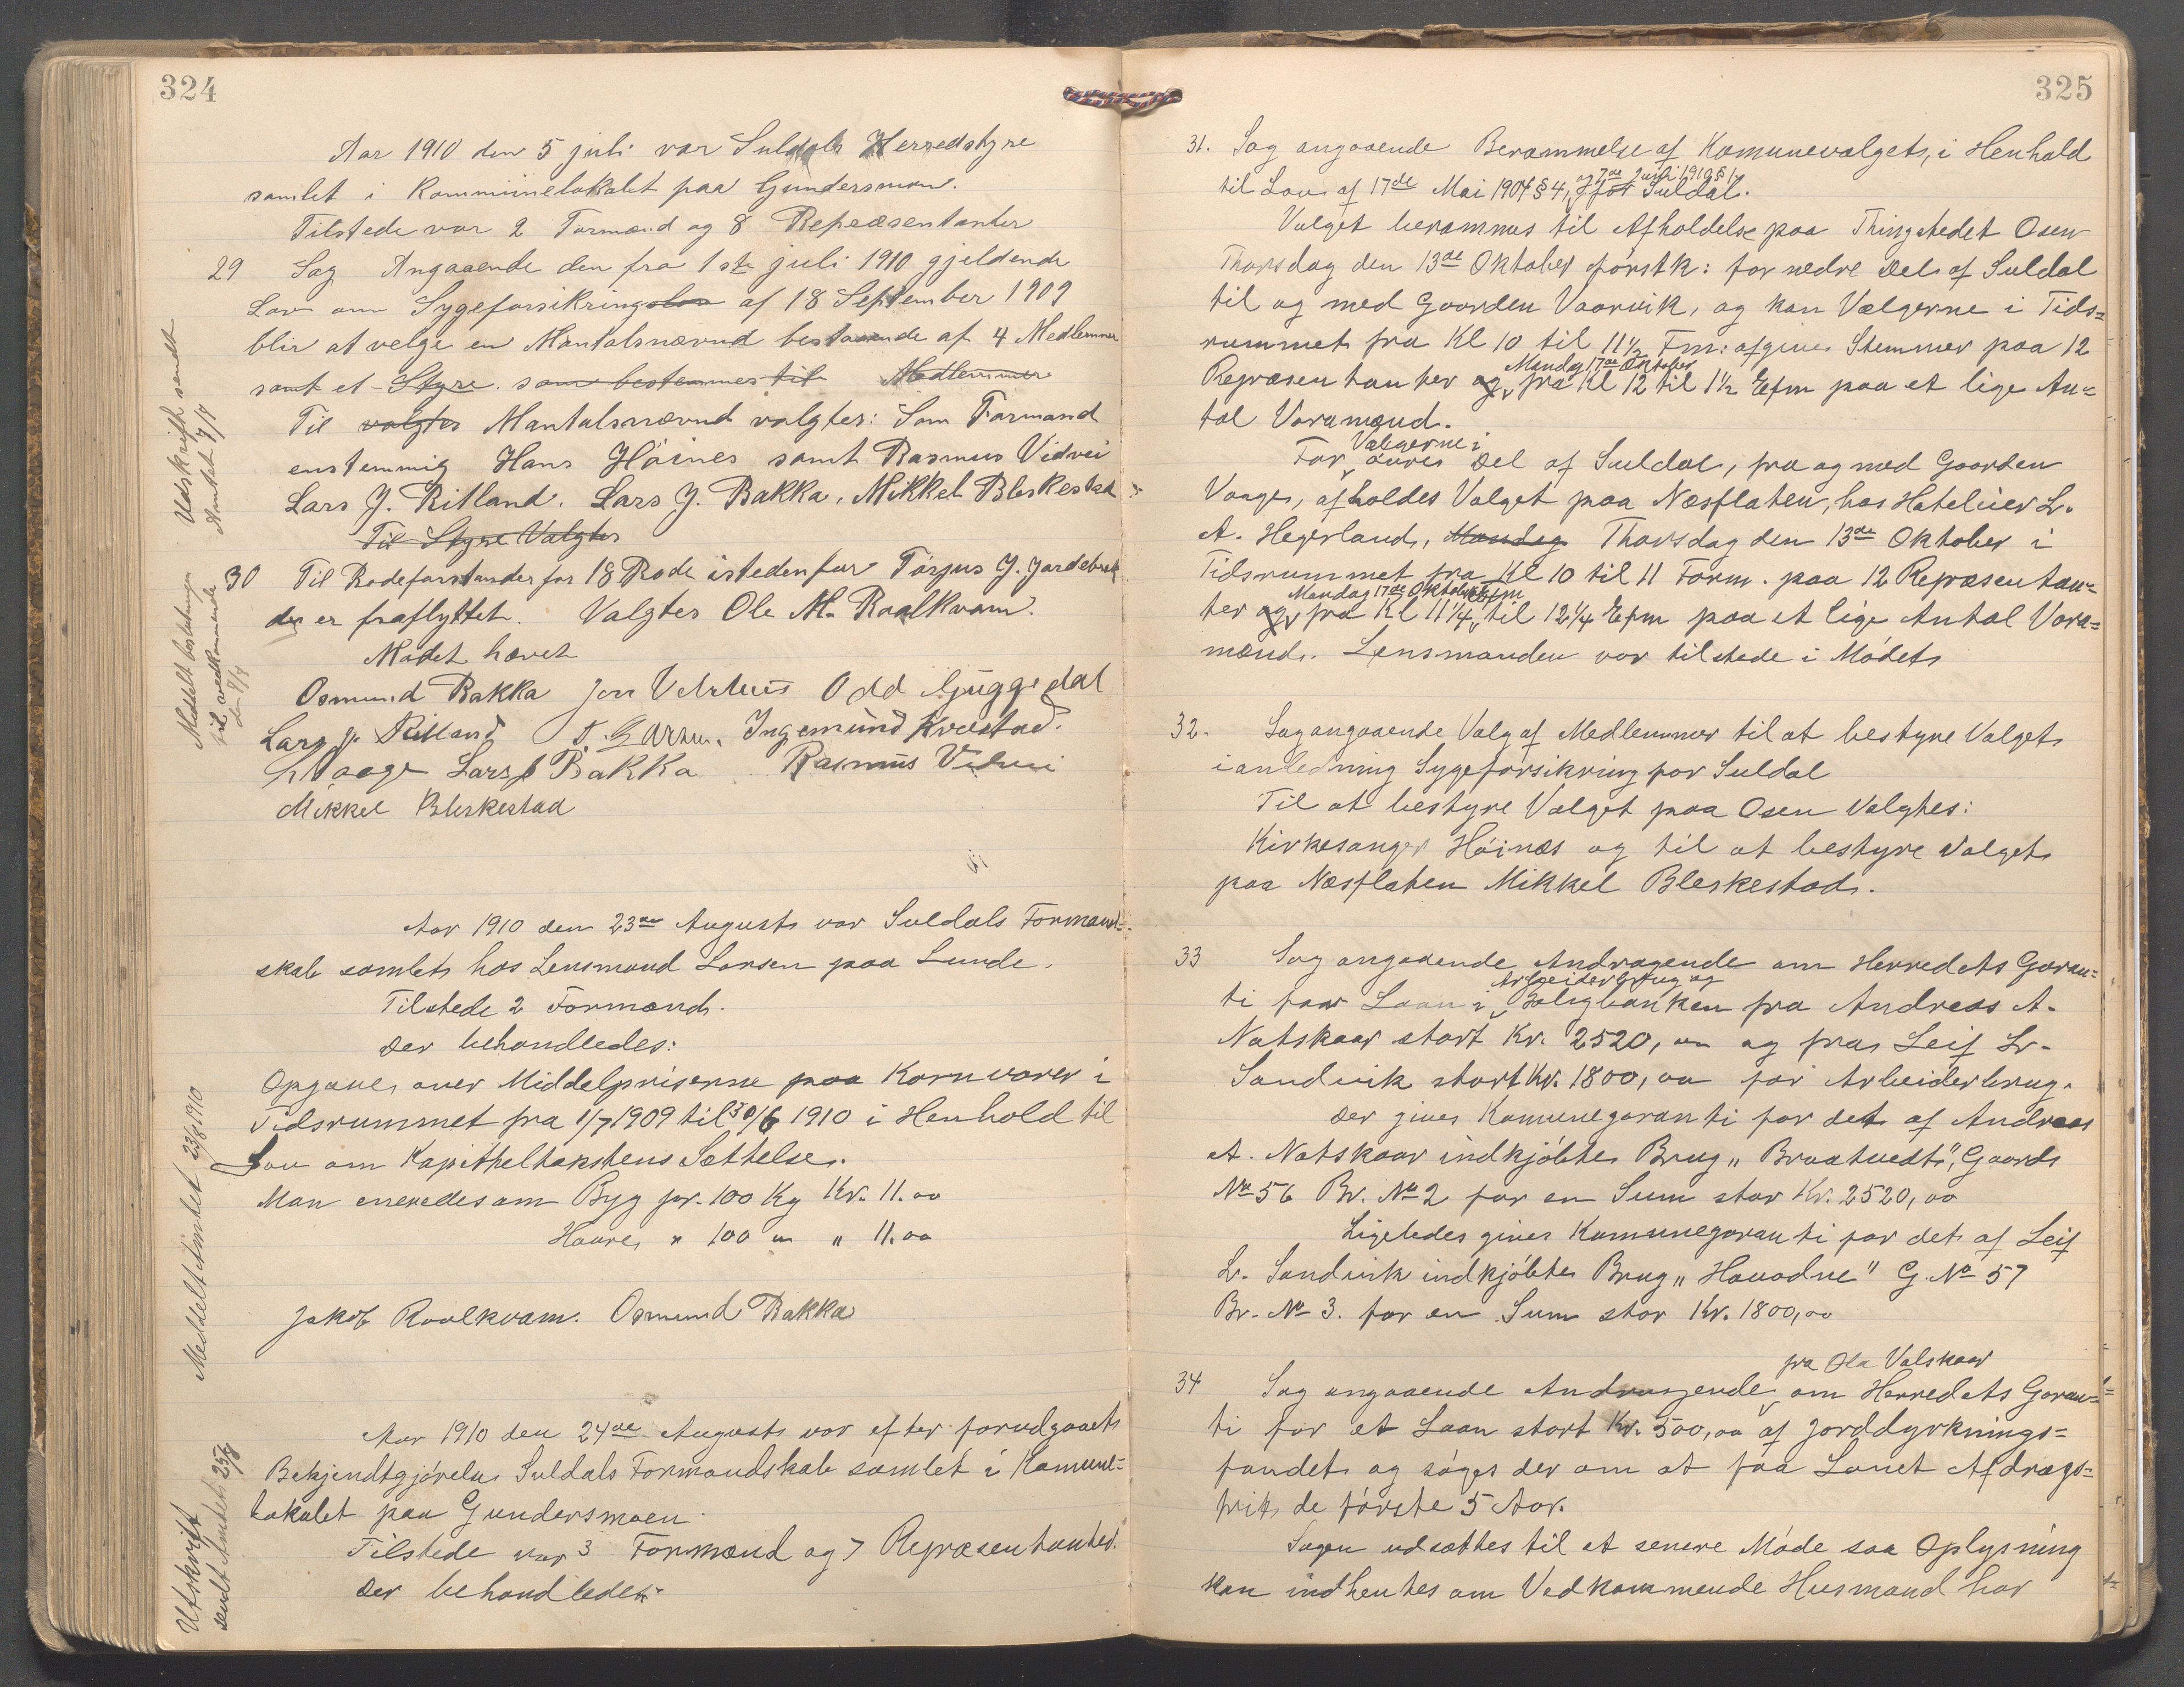 324
Aar 1910 den 5 juli var Suldals Herredstyre
samlet i Kommunelokalet paa Gundersmoen.
Tilstede var 2 Formænd og 8 Repræsentanter
29 Sag Angaaende den fra 1ste juli 1910 gjeldende
Lov om Sygeforsikringslov af 18 September 1909
blir at velge en Mantalsnævnd bestaaende af 4 Medlemmer
samt et Styre som bestemmes til Medlemmer
Til valgtes Mantalsnævnd valgtes: Som Formand
enstemmig Hans Høines samt Rasmus Vidvei
Lars J. Ritland. Lars J. Bakka, Mikkel Bleskestad
Til Styre Valgtes
30 Til Rodeforstander for 18 Rode istedenfor Torjus J. Jordebrek
der er fraflyttet. Valgtes Ole M. Roalkvam.
Mødet hævet
Osmund Bakka Jon Vetrhus Odd Guggedal
Lars J. Ritland Ingemund Kvæstad.
Vaage Lars J Bakka Rasmus Vidvei
Mikkel Bleskestad
Udskrift sendt
Amtet 9/7
Meddelt beslutningen
til vedkommende
den 9/7
Aar 1910 den 23de August var Suldals Formand-
skab samlet hos Lensmand Larsen paa Lunde.
Tilstede 2 Formænd.
Der behandledes:
Opgave over Middelpriserne paa Kornvarer i
Tidsrummet fra 1/7 1909 til 30/6 1910 i Henhold til
Lov om Kapitheltakstens Sættelse.
Man enevedes om Byg pr. 100 Kg Kr. 11.00
Havre " 100 " " 11.00
Jakob Roalkvam. Osmund Bakka
Meddelt Amtet 23/8 1910
Aar 1910 den 24de August var efter forudgaaet
Bekjendtgjørelse Suldals Formandskab samlet i Komune=
lokalet paa Gundersmoen
Tilstede var 3 Formænd og 7 Repræsentanter.
Der behandledes:
Utskrift
sendt Amtet 25/8
325
31. Sag angaaende Berammelse af Komunevalget, i Henhold
til Lov af 17de Mai 1904 § 4, og 7de Juni 1910 § 1 for Suldal.
Valget berammes til Afholdelse paa Thingstedet Osen
Thorsdag den 13de Oktober førstk: for nedre Del af Suldal
til og med Gaarden Vaarvik, og kan Vælgerne i Tids=
rummet fra Kl 10 til 11½ Fm: afgive Stemmer paa 12
Repræsentanter og Mandag 17de Oktober fra Kl 12 til 1½ Efm paa et lige An=
tal Varamænd.
For Vælgerne i øvre Del af Suldal, fra og med Gaarden
Vaage, afholdes Valget paa Næsflaten, hos Hoteleier L.
A. Hegerland, Mandag Thorsdag den 13de Oktober i
Tidsrummet fra Kl 10 til 11 Form. paa 12 Repræsentan=
ter og Mandag 17de Oktober fra Kl 11¼ Form til 12¼ Efm paa et lige Antal Vara=
mænd. Lensmanden var tilstede i Mødet
32. Sag angaaende Valg af Medlemmer til at bestyre Valget
i anledning Sygeforsikring for Suldal
Til at bestyre Valget paa Osen Valgtes:
Kirkesanger Høinæs og til at bestyre Valget
paa Næsflaten Mikkel Bleskestad.
33 Sag angaaende Andragende om Herredets Garan=
ti for Laan i Arbeiderbrug og Boligbanken fra Andreas A.
Natskaar stort Kr. 2520,00 og fra Leif L.
Sandvik stort Kr. 1800,00 for Arbeiderbrug.
Der gives Komunegaranti for det af Andreas
A. Natskaar indkjøbte Brug "Braatvedt", Gaards
No 56 Br. No 2 for en Sum stor Kr. 2520,00
Ligeledes gives Komunegaranti for det af Leif
L. Sandvik indkjøbte Brug "Hovodne" G. No 57
Br. No 3. for en Sum stor Kr. 1800,00
34 Sag angaaende Andragende fra Ola Valskaar om Herredets Garan=
ti for et Laan stort Kr. 500,00 af Jorddyrknings=
fondet og søges der om at faa Lanet Afdrags=
frit de første 5 Aar.
Sagen udsættes til et senere Møde saa Oplysning
kan indhentes om Vedkommende Husmand har